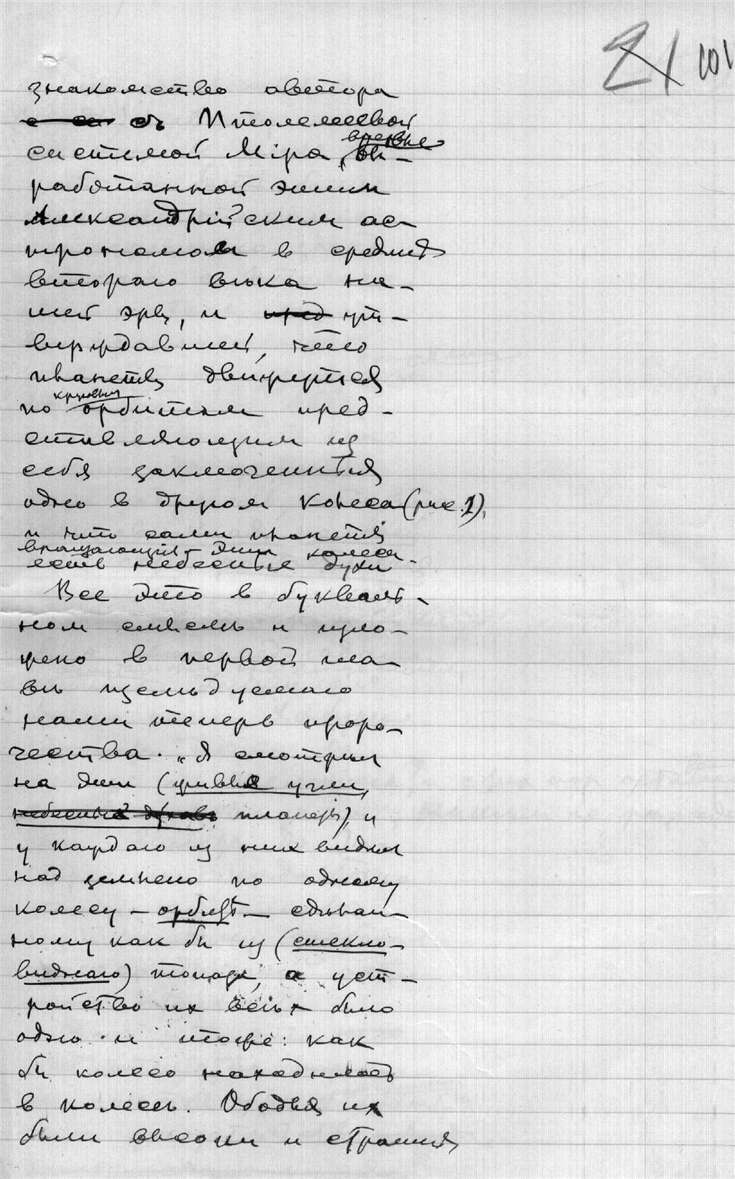 101
знакомство автора
съ Птолемеевой
системой Міра, впервые
работанной этим
Александрійским ас-
трономом в средине
второго вѣка на-
шей эры, и ут-
верждавшей, что
планеты движутся
по круговым орбитам пред-
ставляющим из
себя заключенныя
одно в другом колеса (рис. 1),
и что сами планеты
вращающія эти колеса
есть небесные духи.
Все это в букваль-
ном смыслѣ и изло-
жено в первой гла-
вѣ изслѣдуемаго
нами теперь проро-
чества. „Я смотрѣл
на эти
планеты), и
у каждаго из них видѣл
над землею по одному
колесу – орбитѣ –
ному как бы из (стекло-
виднаго) топаза, а уст-
ройство их всѣх было
одно и тоже: как
бы колесо находилось
в колесѣ. Ободья их
были высоки и страшны